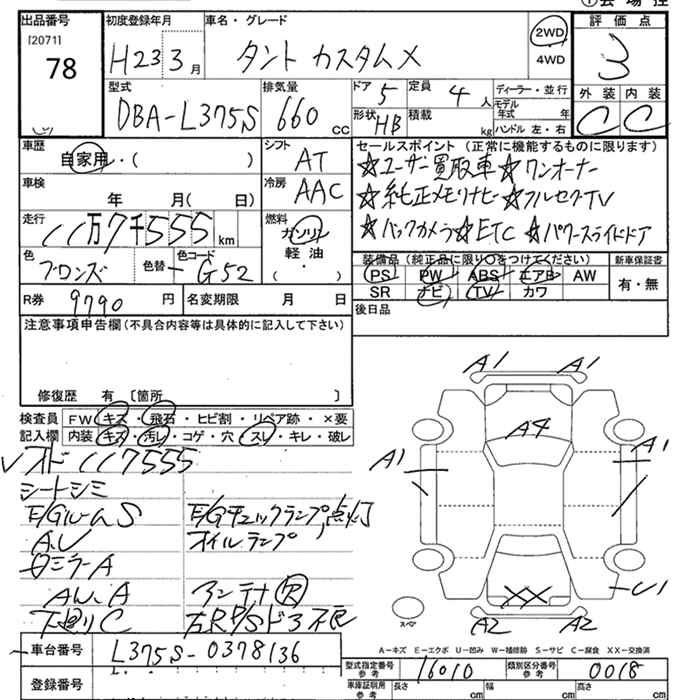 ①会場控
出品番号 初度登録年月 車名・グレード 評価点
[2071]
78 H23 3月 タント カスタムX 2WD ・ 4WD 3
型式 排気量 ドア 5 定員 4人 ディーラー・並行 外装 内装
DBA-L375S 660cc 形状 HB 積載 kg モデル年式 年 ハンドル 左・右 C C
車歴 自家用・( ) シフト AT セールスポイント (正常に機能するものに限ります)
☆ユーザー買取車☆ワンオーナー
車検 年 月( 日) 冷房 AAC ☆純正メモリナビ☆フルセグTV
走行 11万7千555km 燃料 ガソリン ☆バックカメラ☆ETC ☆パワースライドドア
軽油
( ・ )
色 ブロンズ 色替 - 色コード G52
装備品 (純正品に限り○をつけてください) 新車保証書
PS PW ABS エアB AW 有・無
SR ナビ TV カワ
R券 9790円 名変期限 月 日 後日品
注意事項申告欄 (不具合内容等は具体的に記入して下さい)
修復歴 有 〔箇所 〕
検査員 FW キズ ・ 飛石 ・ ヒビ割 ・ リペア跡 ・ ×要
記入欄 内装 キズ ・ 汚れ ・ コゲ ・ 穴 ・ スレ ・ キレ ・ 破レ
オド 117555
シートシミ
E/Gルーム S E/Gチェックランプ点灯
A.U オイルランプ
ミラーA
AW.A アンテナ R
下廻りC 右R P/Sドア不良
A1 A1
A4
A1 A1
XX
U1
A2 A2
スペア
A-キズ E-エクボ U-凹み W-補修跡 S-サビ C-腐食 XX-交換済
車台番号 L375S-0378136
型式指定番号 参考 16010 類別区分番号 参考 0018
登録番号
車庫証明用 参考 長さ cm 幅 cm 高さ cm